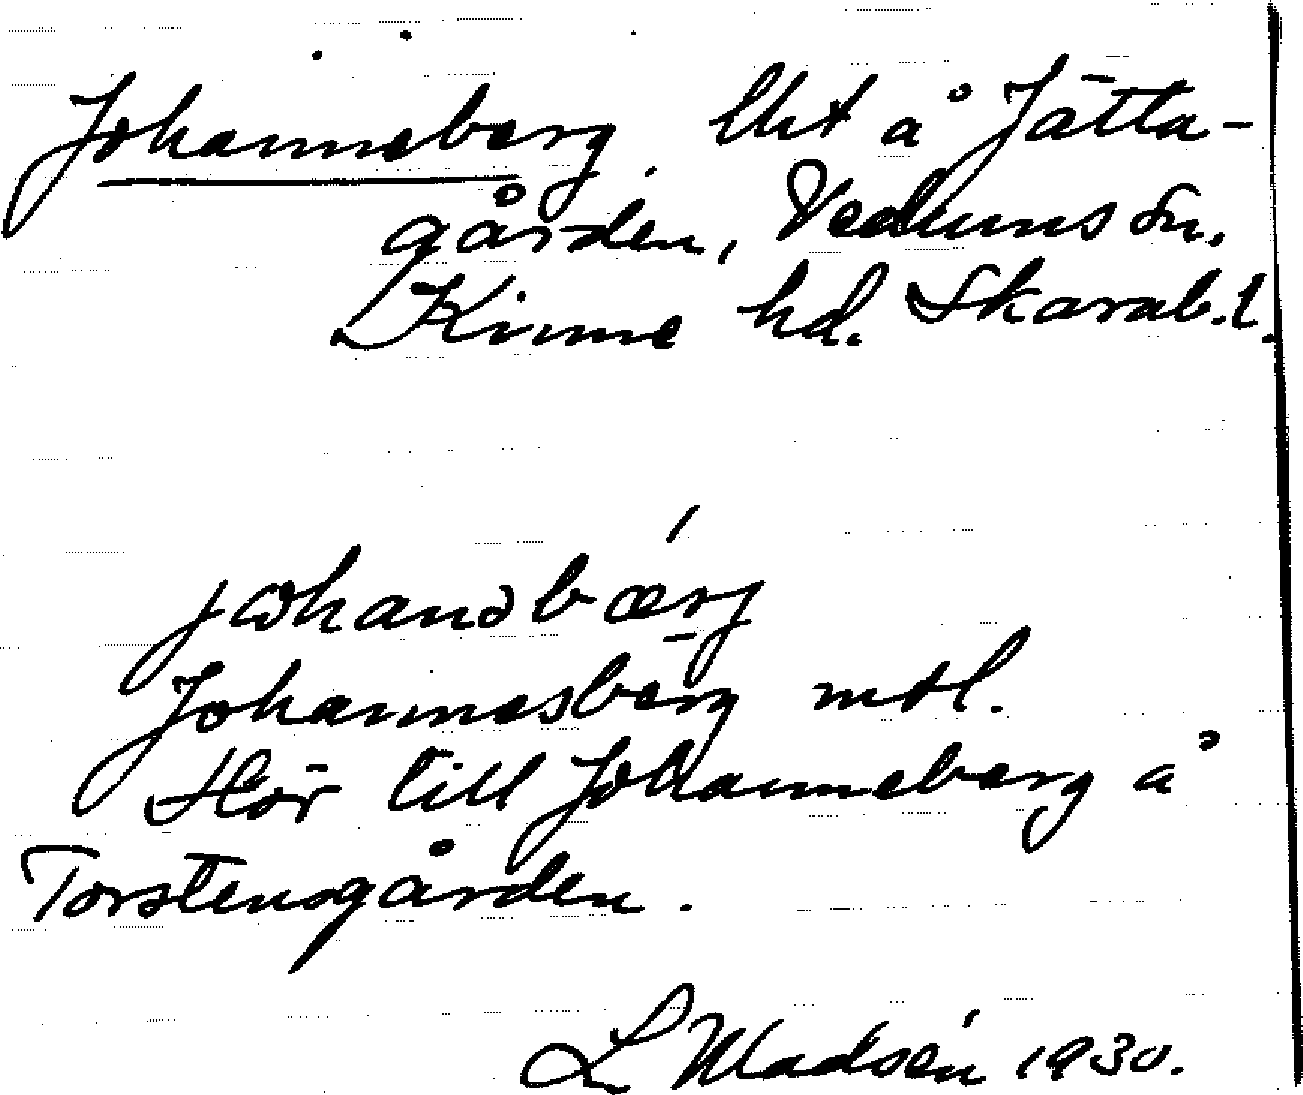 Johanneberg. lht å Jätta-
gården, Vedums sn.
Kinne hd. Skarab. l.
johanəbærj
Johannesberg mtl.
Hör till Johanneberg å
Torstensgården.
L Madsén 1930.